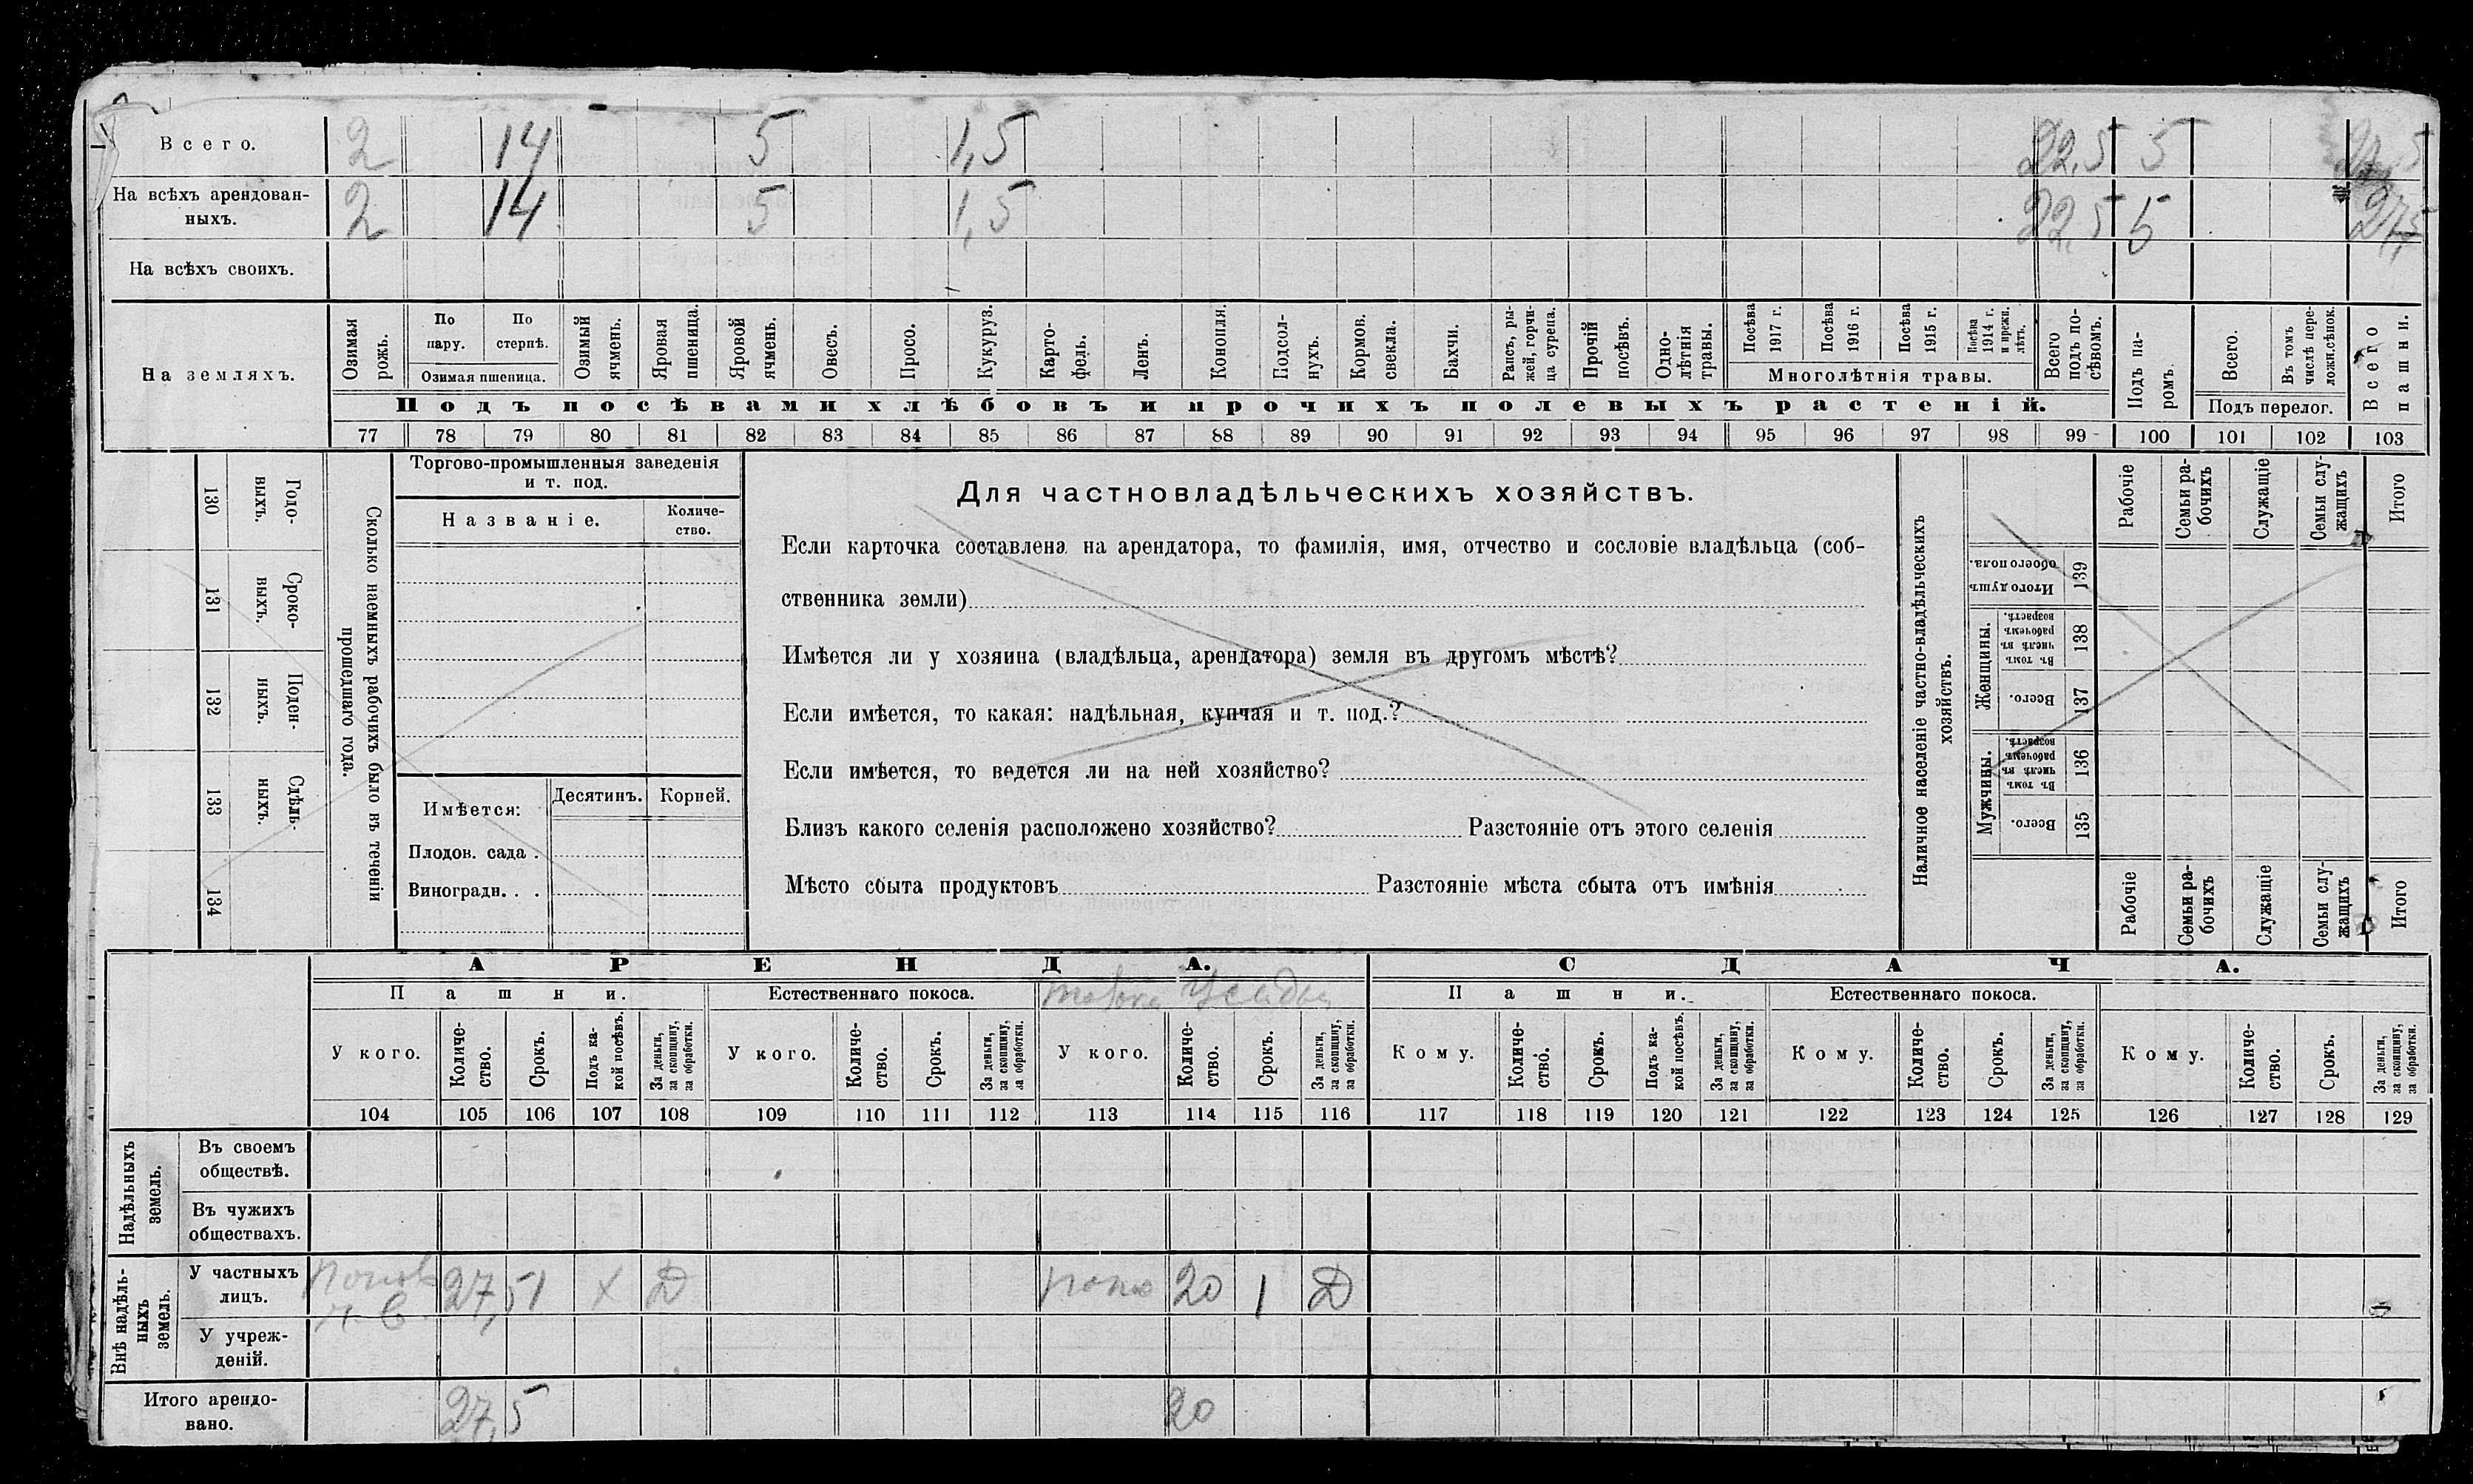 Всего. 2 14 5 1,5 22,5 5
На всѣхъ арендован-
ныхъ. 2 14 5 1,5 22,5 5 27,5
На всѣхъ своихъ.
На земляхъ.
Озимая рожь.
По пару.
По стернѣ.
Озимая пшеница.
Озимый ячмень.
Яровая пшеница.
Яровой ячмень.
Овесъ.
Просо.
Кукуруз.
Карто-
фель.
Ленъ.
Конопля.
Подсол-
нухъ.
Кормов. свекла.
Бахчи.
Рапсъ, ры-
жей, горчи-
ца сурепа.
Прочій посѣвъ.
Одно-
лѣтнія травы.
Посѣва 1917 г.
Посѣва 1916 г.
Посѣва 1915 г.
Посѣва 1914 г. и прежн. лѣтъ.
Многолѣтнія травы.
Всего подъ по-
сѣвомъ.
Подъ па-
ромъ.
Всего.
Въ томъ числѣ пере-
ложн.сѣнок.
Подъ перелог.
Всего пашни.
Подъ посѣвами хлѣбовъ и прочихъ полевыхъ растеній.
77 78 79 80 81 82 83 84 85 86 87 88 89 90 91 92 93 94 95 96 97 98 99 100 101 102 103
130 Годо-
выхъ.
131 Сроко-
ныхъ.
132 Поден-
ныхъ.
133 Сдѣль-
ныхъ.
134
Сколько наемныхъ рабочихъ было въ теченіи
прошедшаго года.
Торгово-промышленныя заведенія
и т. под.
Названіе.
Количе-
ство.
Имѣется:
Десятинъ.
Корней.
Плодов. сада .
Виноградн. . .
Для частновладѣльческихъ хозяйствъ.
Если карточка составлена на арендатора, то фамилія, имя, отчество и сословіе владѣльца (соб-
ственника земли)
Имѣется ли у хозяина (владѣльца, арендатора) земля въ другомъ мѣстѣ?
Если имѣется, то какая: надѣльная, купчая и т. под.?
Если имѣется, то ведется ли на ней хозяйство?
Близъ какого селенія расположено хозяйство? Разстояніе отъ этого селенія
Мѣсто сбыта продуктовъ Разстояніе мѣста сбыта отъ имѣнія
Наличное населеніе частно-владѣльческихъ
хозяйствъ.
Рабочіе
Семьи ра-
бочихъ
Служащіе
Семьи слу-
жащихъ
Итого
Итого душъ обоего пола. 139
Женщины.
Въ томъ числѣ въ рабочемъ возрастѣ. 138
Всего. 137
Мужчины.
Въ томъ числѣ въ рабочемъ возрастѣ. 136
Всего. 135
Рабочіе
Семьи ра-
бочихъ
Служащіе
Семьи слу-
жащихъ
Итого
АРЕНДА.
СДАЧА.
Пашни.
Естественнаго покоса.
Пашни.
Естественнаго покоса.
У кого.
Количе-
ство.
Срокъ.
Подъ ка-
кой посѣвъ.
За деньги,
за скопщину,
за обработки.
У кого.
Количе-
ство.
Срокъ.
За деньги,
за скопщину,
за обработки.
У кого.
Количе-
ство.
Срокъ.
За деньги,
за скопщину,
за обработки.
Кому.
Количе-
ство.
Срокъ.
Подъ ка-
кой посѣвъ.
За деньги,
за скопщину,
за обработки.
Кому.
Количе-
ство.
Срокъ.
За деньги,
за скопщину,
за обработки.
Кому.
Количе-
ство.
Срокъ.
За деньги,
за скопщину,
за обработки.
104 105 106 107 108 109 110 111 112 113 114 115 116 117 118 119 120 121 122 123 124 125 126 127 128 129
Надѣльныхъ
земель.
Въ своемъ
обществѣ.
Въ чужихъ
обществахъ.
Внѣ надѣль-
ныхъ
земель.
У частныхъ
лицъ. 27,5 1 х Д 20 1 Д
У учреж-
деній.
Итого арендо-
вано. 27,5 20